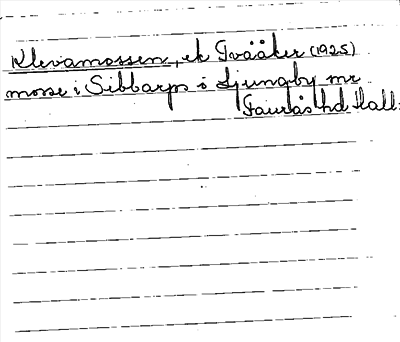 Klevamossen, ek Tvååker (1925)
mosse i Sibbarps o Ljungby snr
Faurås hd Hall.